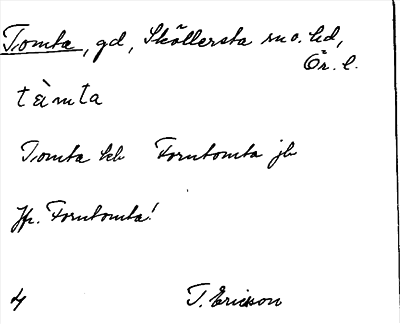 Tomta, gd, Sköllersta sn o. hd,
Ör. l.
tàmta
Tomta hb Forntomta jb
Jfr. Forntomta!
T. Ericsson